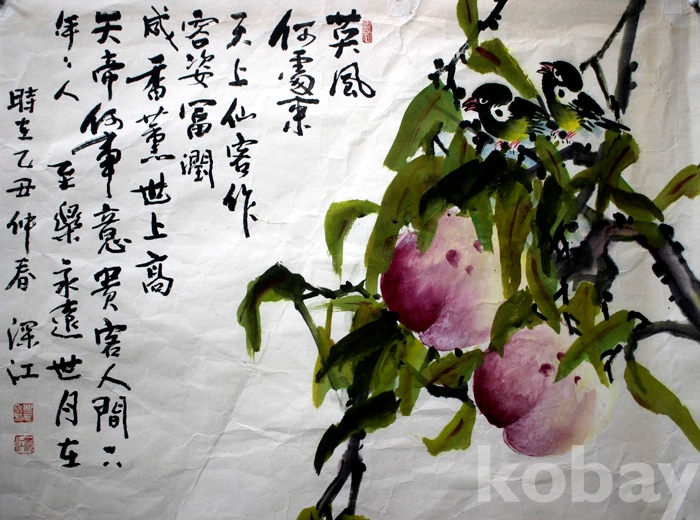 英風
何處來
天上仙客作
容姿富潤
咸香薰世上高
天帝何事意貴客人間六
年年人 至樂永遠世月在
時在乙丑仲春 深江
kobay